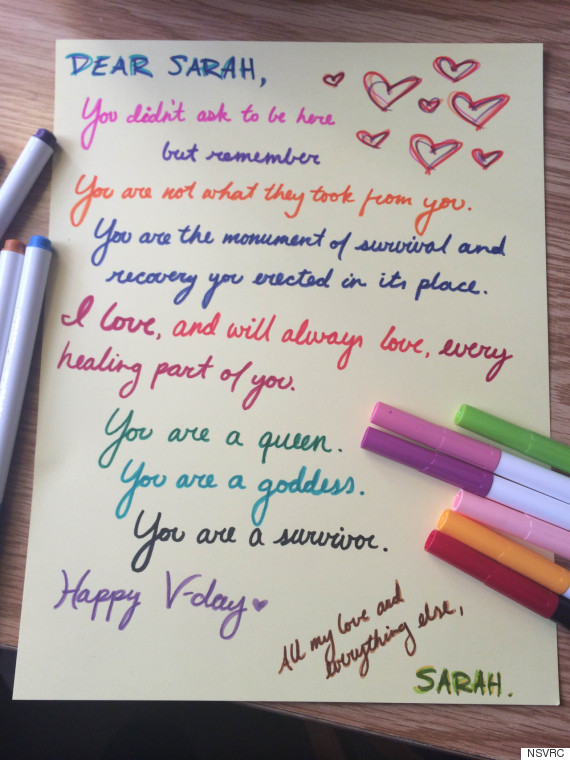 DEAR SARAH,
You didn't ask to be here
but remember
You are not what they took from you.
You are the monument of survival and
recovery you erected in its place.
I love, and will always love, every
healing part of you.
You are a queen.
You are a goddess.
You are a survivor.
Happy V-day
All my love and
everything else,
SARAH.
NSVRC